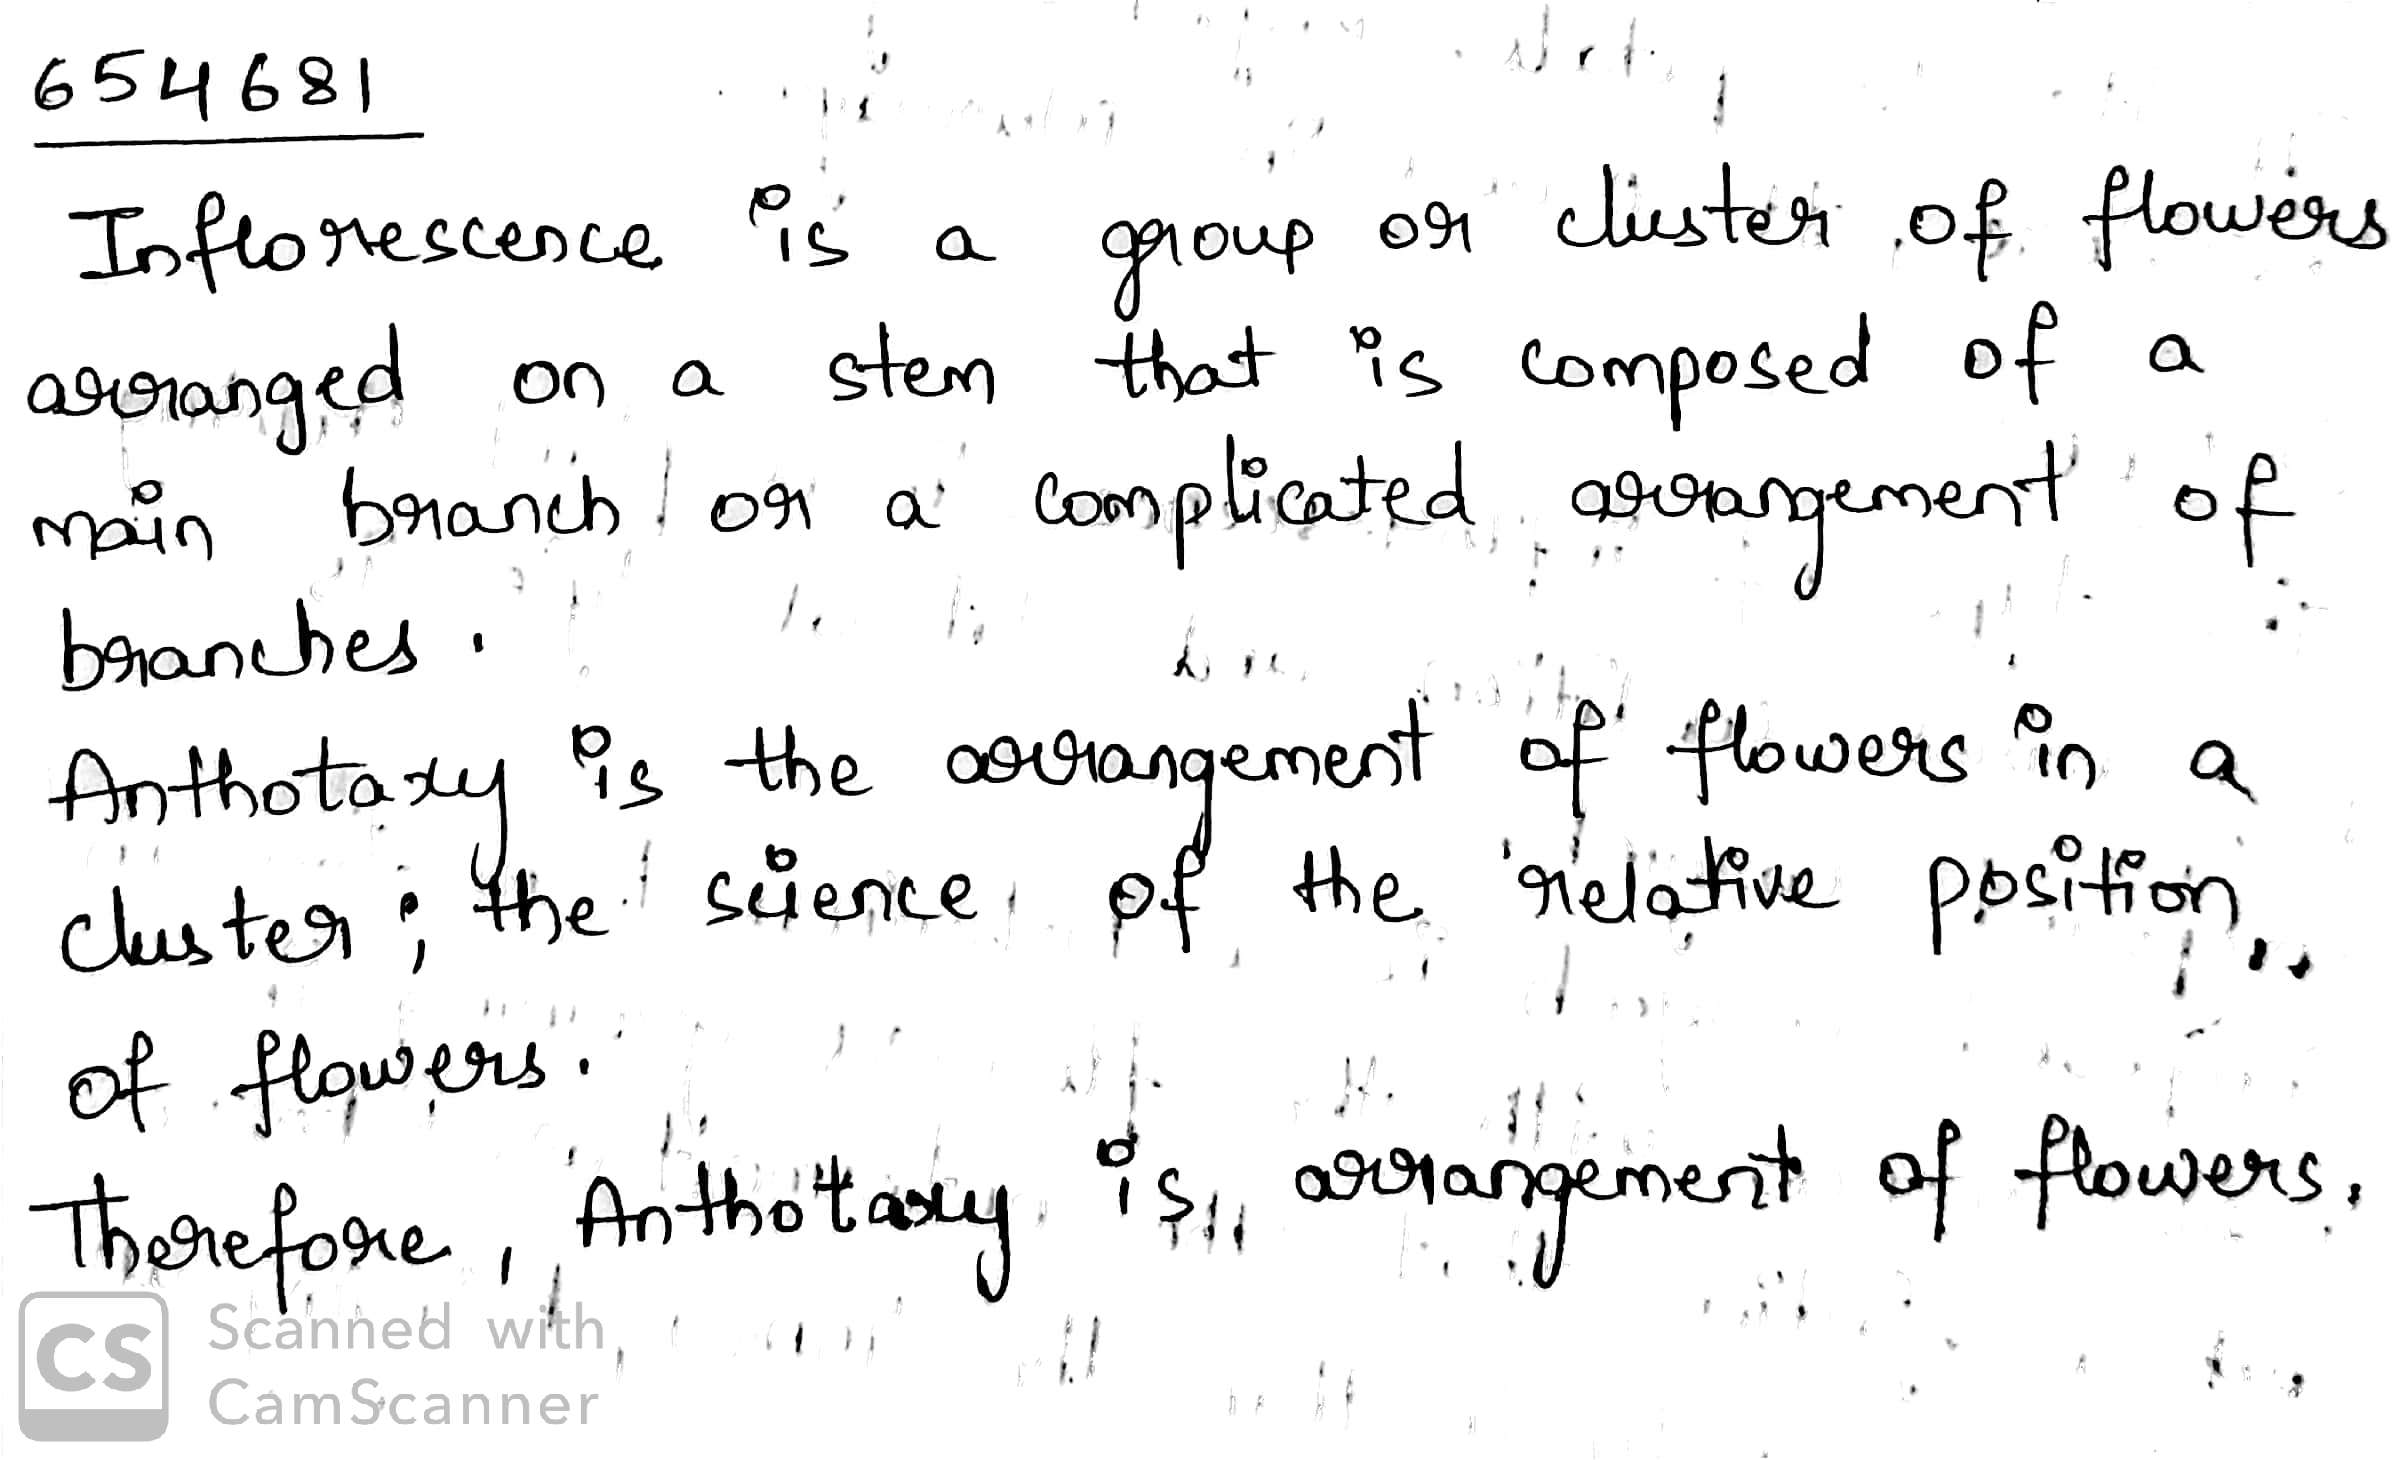 654681
Inflorescence is a group or cluster of flowers
arranged on a stem that is composed of a
main branch or a complicated arrangement of
branches.
Anthotaxy is the arrangement of flowers in a
cluster; the science of the relative position
of flowers.
Therefore, Anthotaxy is arrangement of flowers.
CS Scanned with
CamScanner